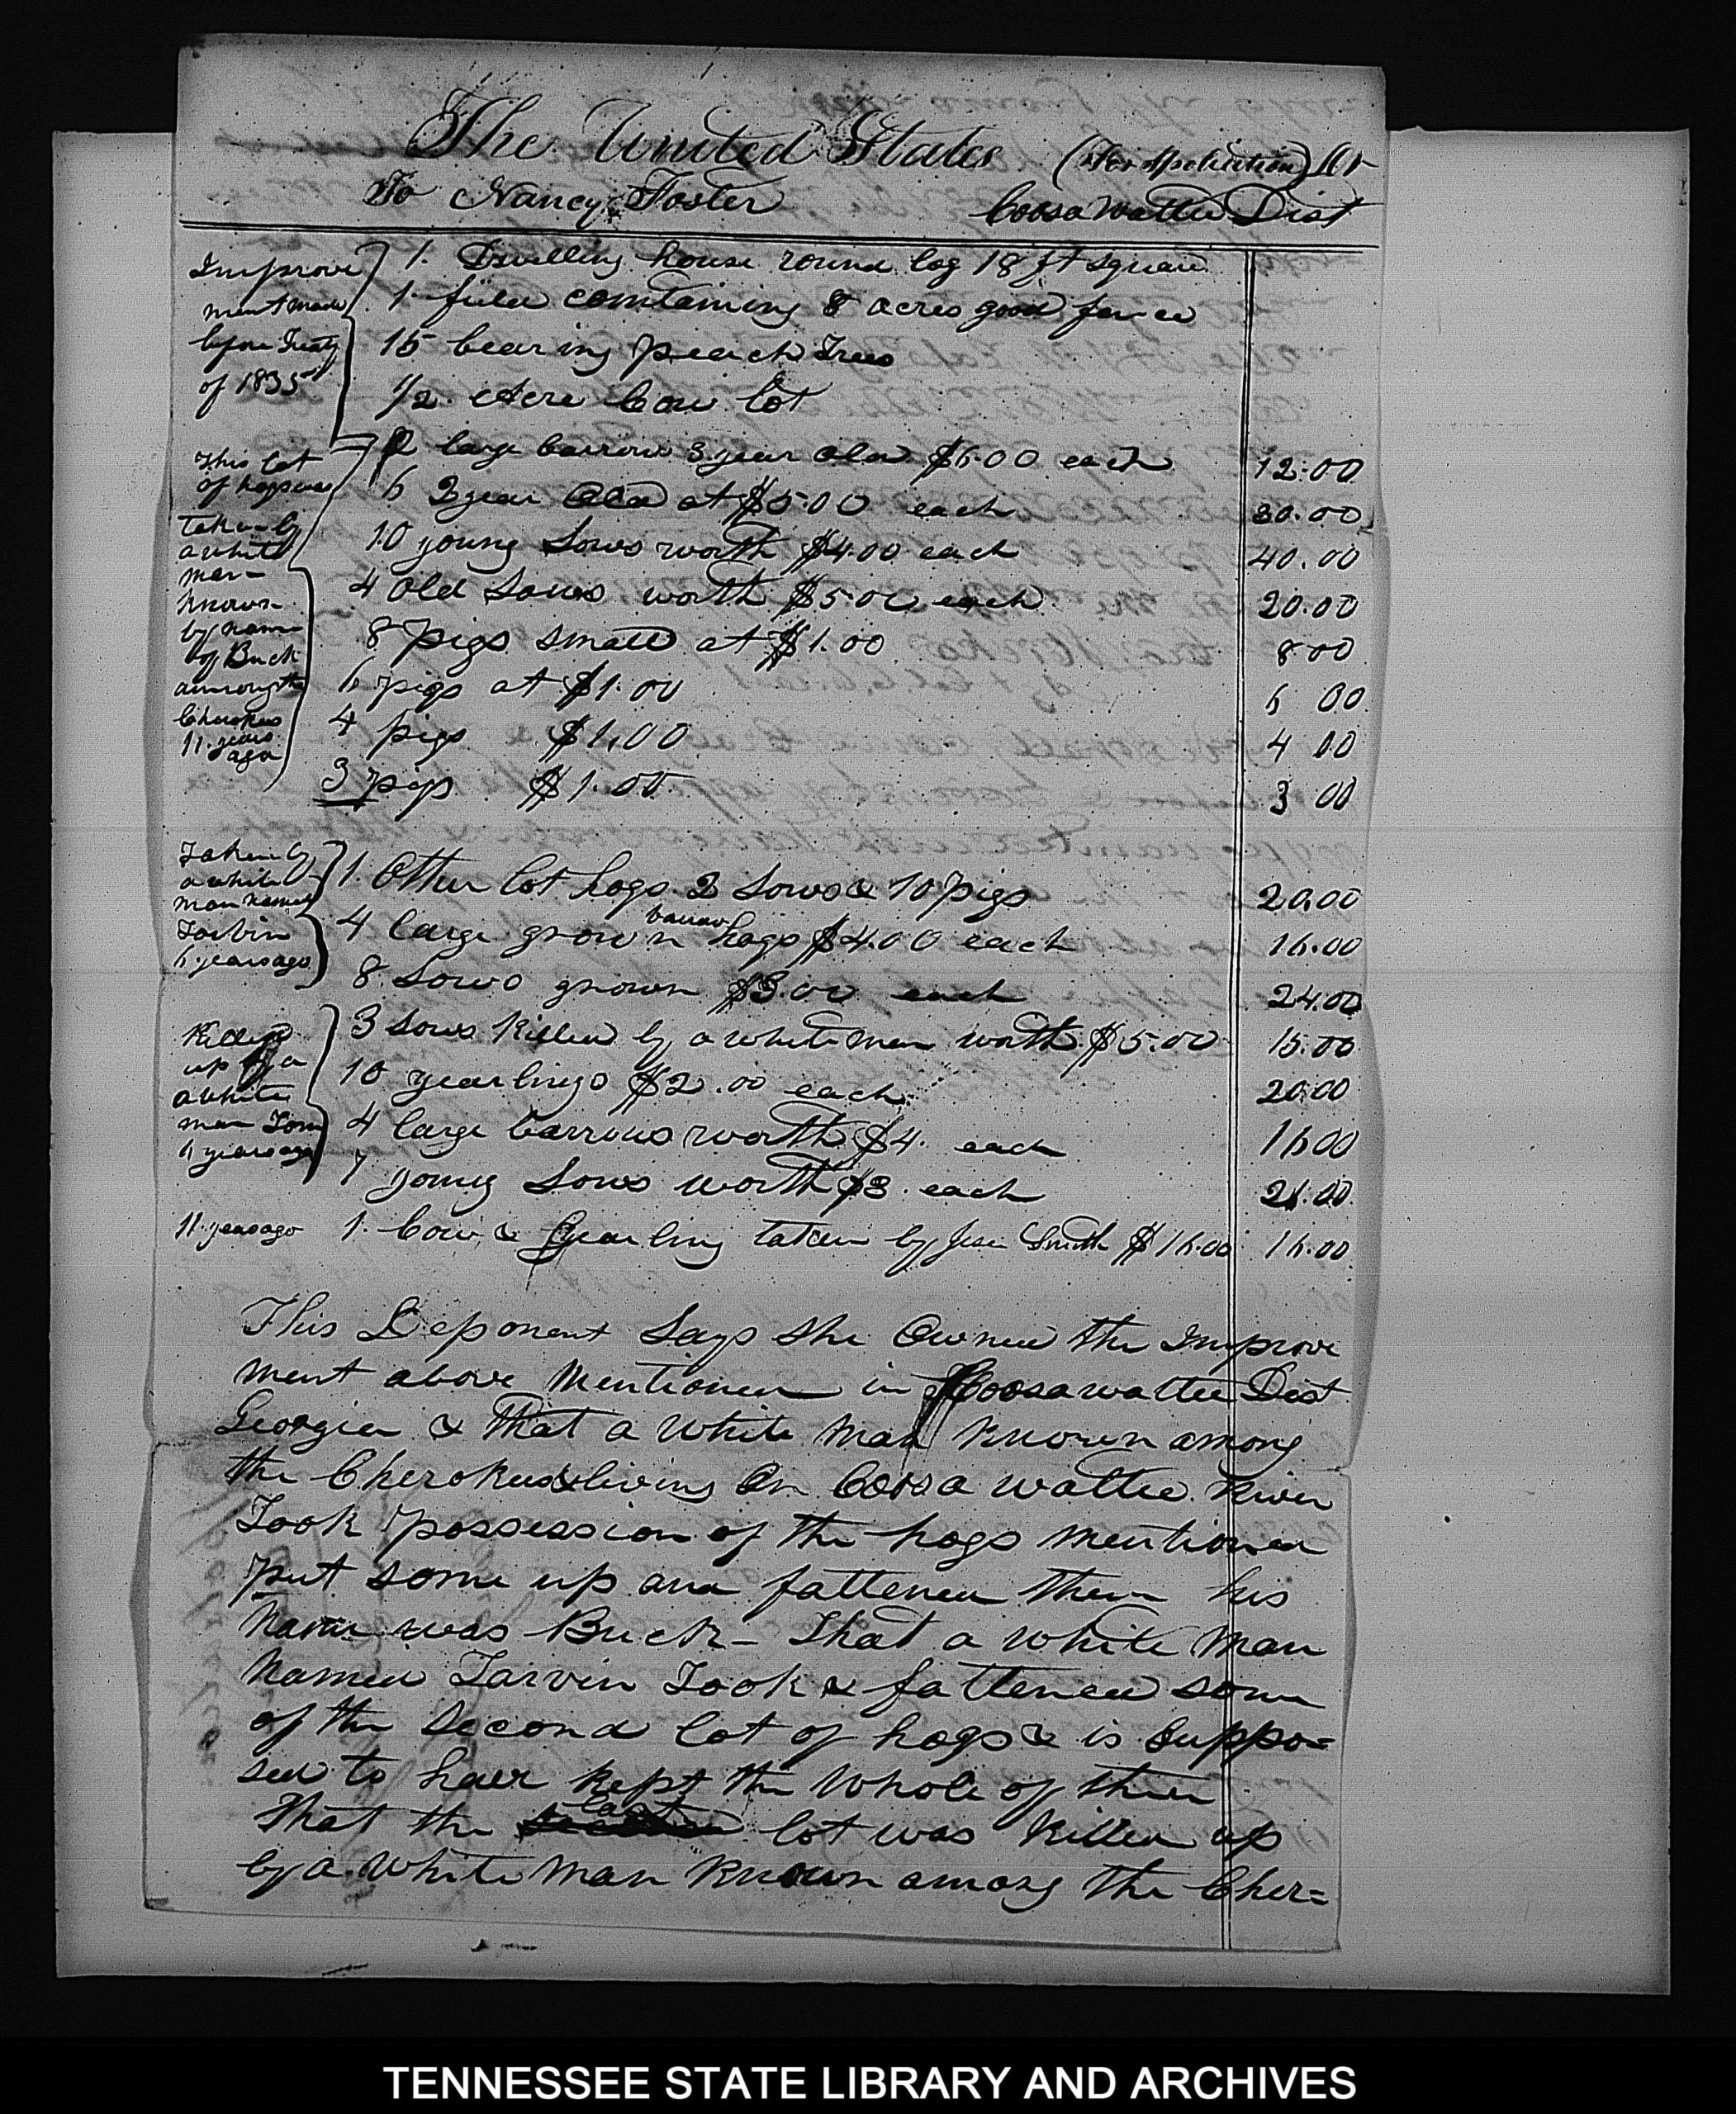 The United States (For Spoliation) Dr
To Nancy Foster Coosa Wattee Dist
Improve
ment made
before Treaty
of 1835
1. Dwelling house round log 18 ft square
1. field containing 8 acres good fence
15 bearing peach Trees
1/2 Acre Cow lot
This lot
of hogs was
taken by
a white
man
known
by name
of Buck
among the
Cherokees
11. years
ago
2 large barrows 3 year old $6.00 each 12.00
6 2 year Old at $5.00 each 30.00
10 young Sows worth $4.00 each 40.00
4 Old Sows worth $5.00 each 20.00
8 pigs small at $1.00 8 00
6 pigs at $1.00 6 00
4 pigs $1,00 4 00
3 pigs $1.00 3 00
Taken by
a white
man named
Tarvin
6 years ago
1. Other lot hogs 2 Sows & 10 pigs 20.00
4 large grown barrow hogs $4.00 each 16.00
8 Sows grown $3.00 each 24.00
Killed
up by a
a white
man Tom
6 years ago
3 Sows Killed by a white man worth $5.00 15.00
10 yearlings $2.00 each 20.00
4 large barrows worth $4. each 16.00
7 young Sows worth $3. each 21.00
11. years ago 1. Cow & yearling taken by Jesse Smith $16.00 16.00
This Deponent Says she Owned the Improve
ment above Mentioned in Coosawattee Dist
Georgia & that a White Man Known among
the Cherokees & living On Coosa Wattee River
Took possession of the hogs Mentioned
put some up and fattened them his
Name was Buck - That a White Man
Named Tarvin Took & fattened some
of the Second lot of hogs & is Suppo=
sed to have Kept the Whole of them
That the last lot was Killed up
by a White Man Known among the Cher=
TENNESSEE STATE LIBRARY AND ARCHIVES